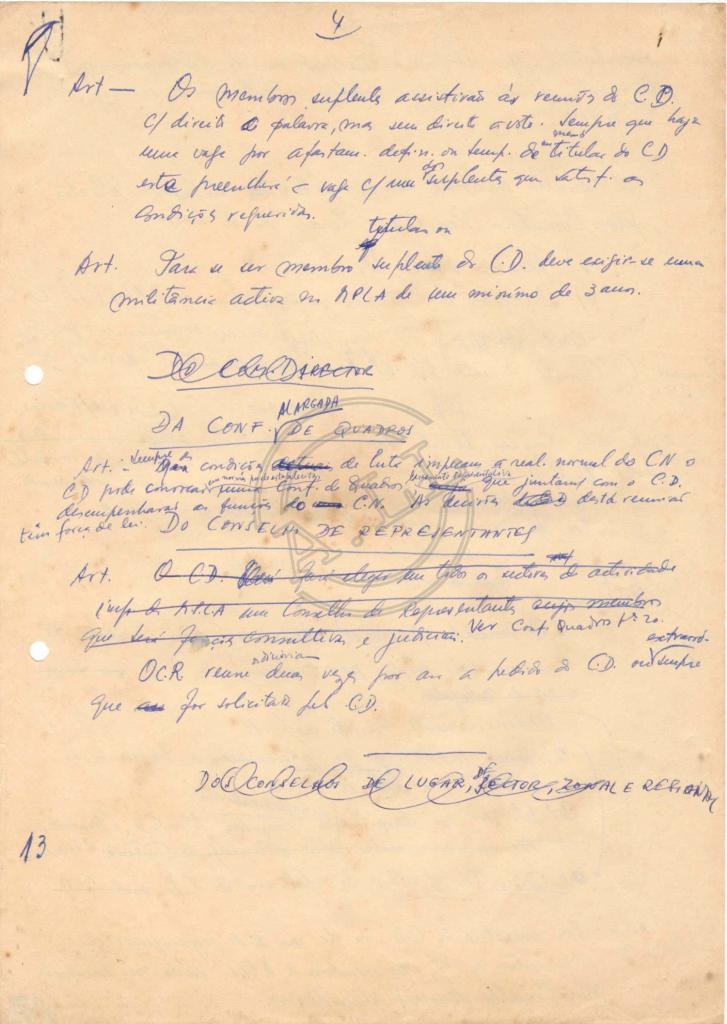 4
Art — Os membros suplentes assistirão às reuniões do C.D.
c/ direito à palavra, mas sem direito a voto. Sempre que haja
uma vaga por afastam. defin. ou temp. de um titular do CD
este preencherá a vaga c/ um dos suplentes que satisf. as
condições requeridas.
titular ou
Art. Para se ser membro suplente do C.D. deve exigir-se uma
militância activa no MPLA de um mínimo de 3 anos.
DO COM. DIRECTOR
ALARGADA
DA CONF. DE QUADROS
Art. - Sempre as condições de luta impeçam a real. normal do CN o
CD pode convocar uma Conf. de Quadros que juntam. com o C.D.
desempenhará as funções do C.N. As decisões desta reunião
têm força de lei.
DO CONSELHO DE REPRESENTANTES
Art. O CD fará eleger em todos os sectores de actividade
do MPLA um Conselho de Representantes cujos membros
que terá funções consultivas e judiciais. Ver Conf. Quadros
ordinária extraord-
O C.R. reune duas vezes por ano a pedido do C.D. ou sempre
que for solicitado pelo C.D.
DOS CONSELHOS DE LUGAR, DE SECTOR, ZONAL E REGIONAL
13